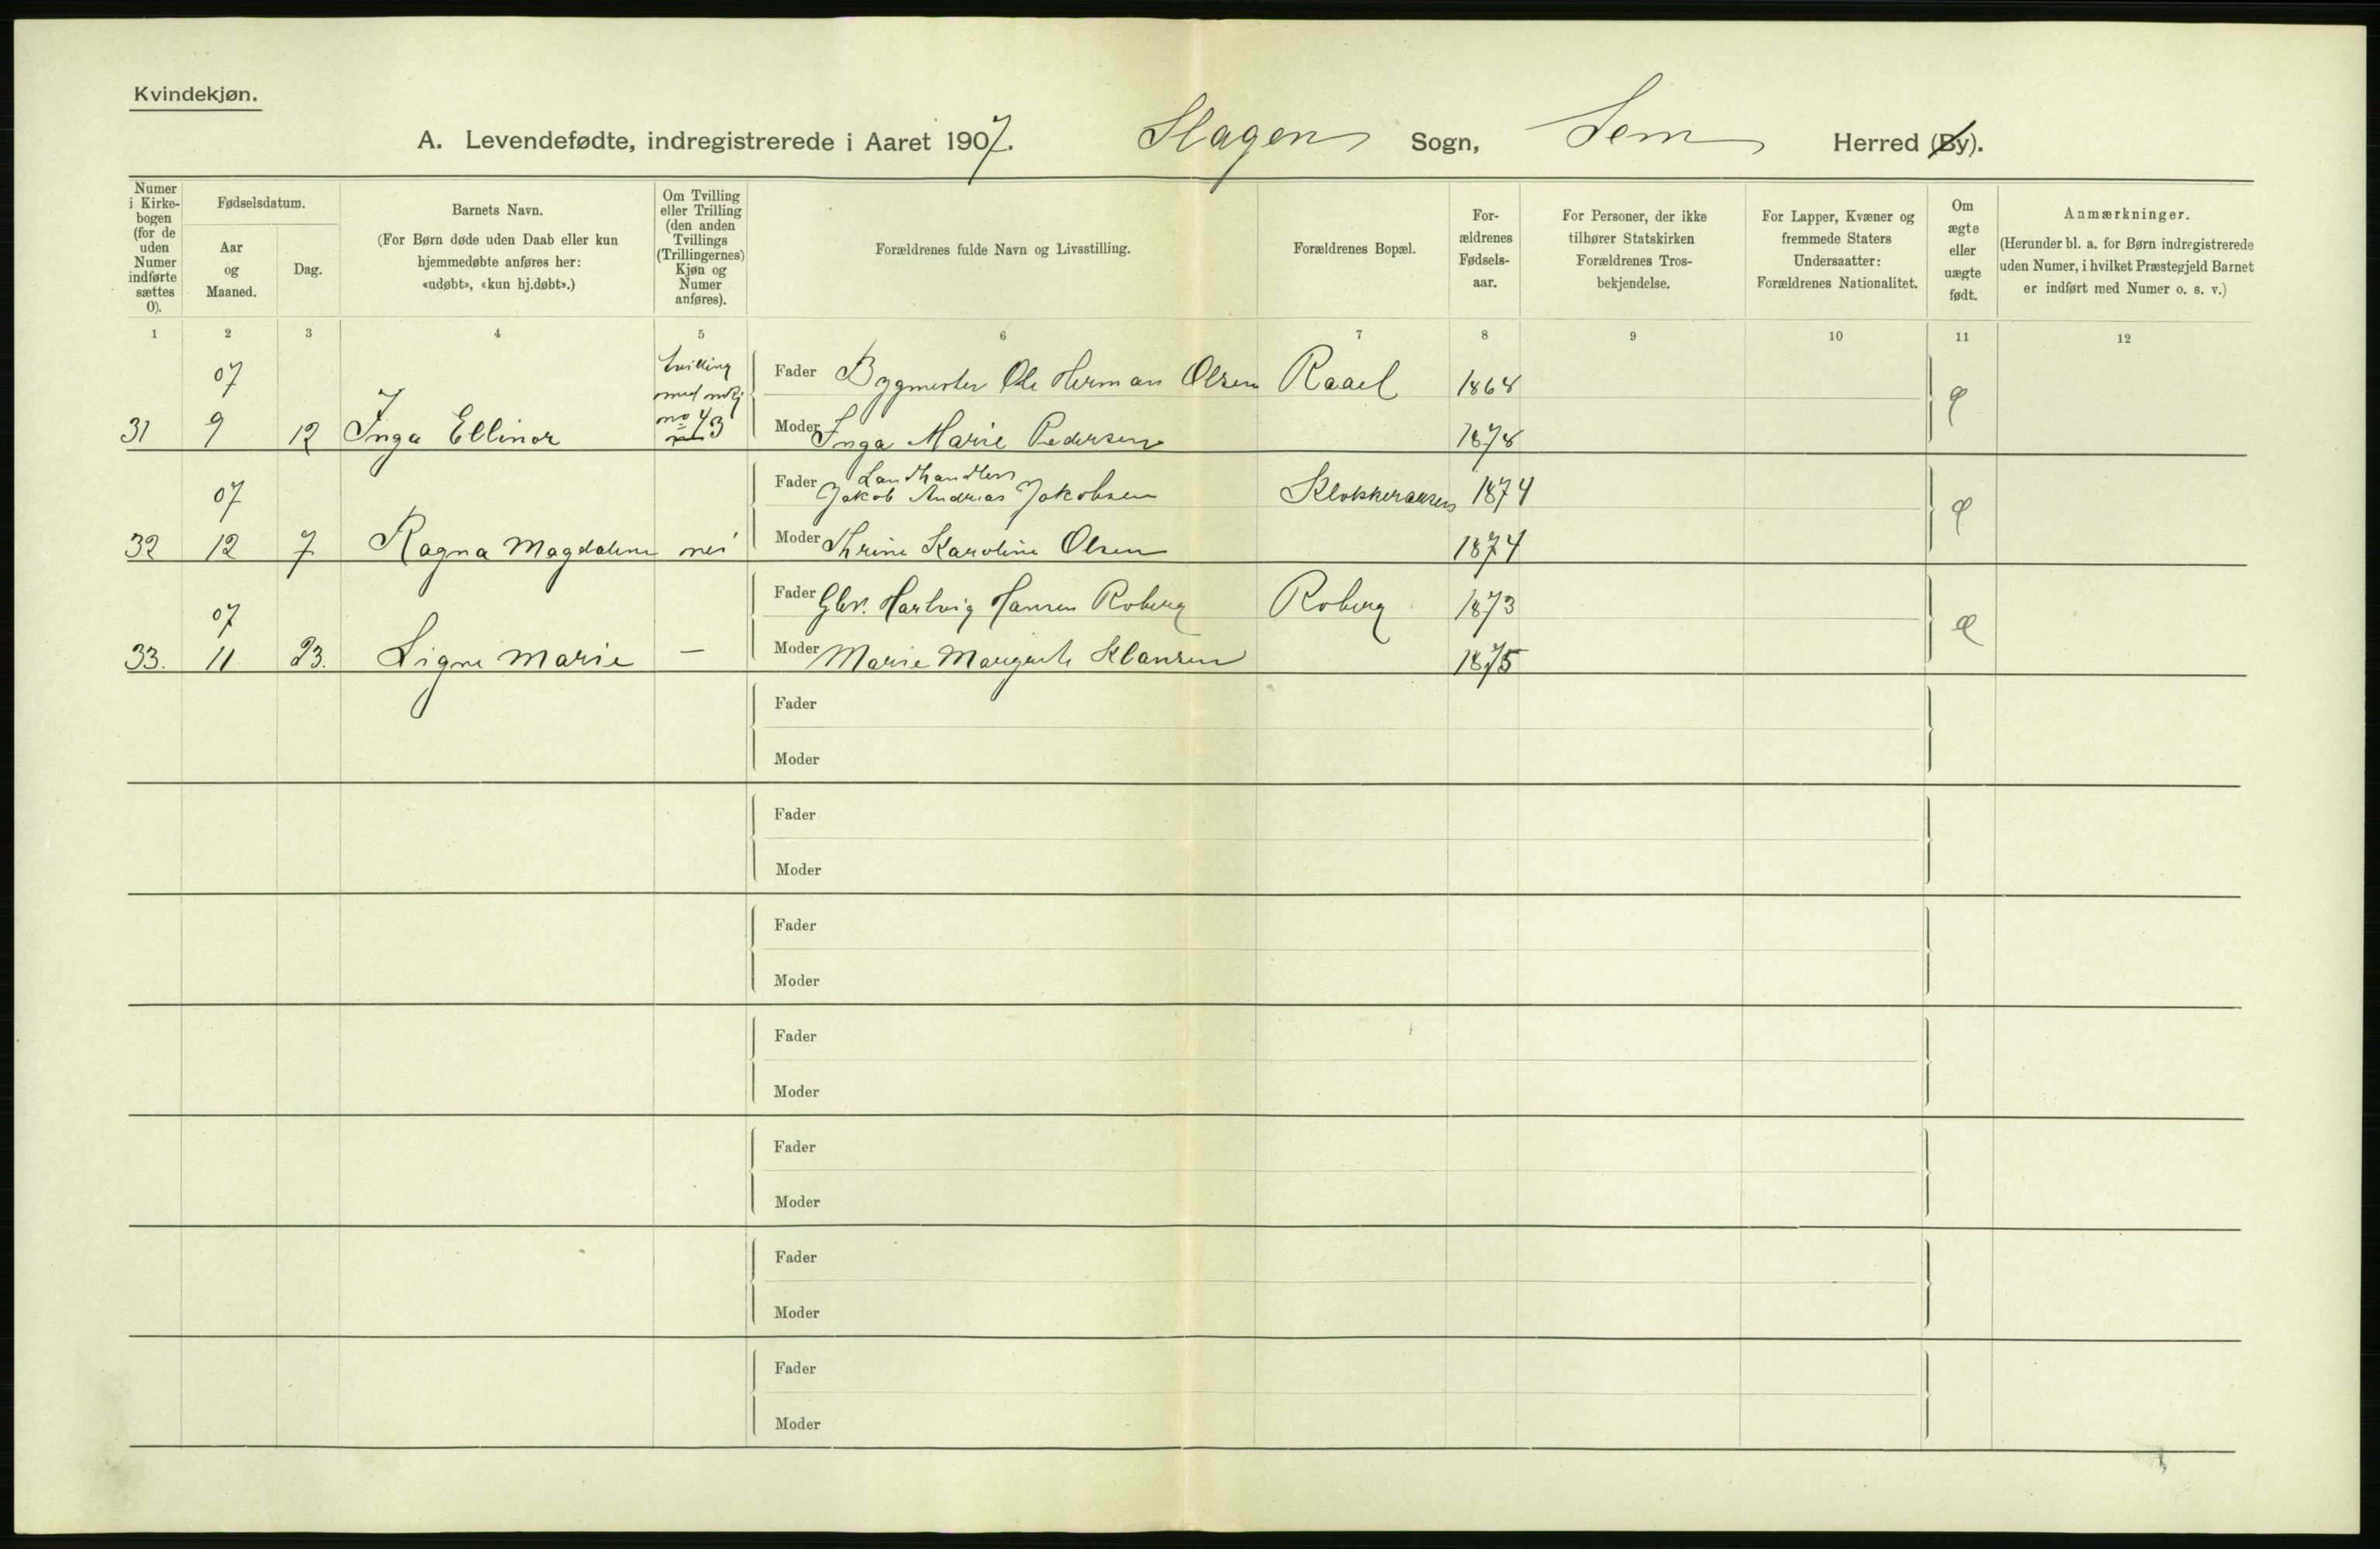 Kvindekjøn.
A. Levendefødte, indregistrerede i Aaret 1907. Slagen Sogn, Sem Herred (By).
Numer i Kirke-bogen (for de uden Numer indførte sættes 0).
Fødselsdatum.
Aar og Maaned.
Dag.
Barnets Navn.
(For Børn døde uden Daab eller kun
hjemmedøbte anføres her:
«udøbt», «kun hj.døbt».)
Om Tvilling
eller Trilling
(den anden
Tvillings
(Trillingernes)
Kjøn og
Numer
anføres).
Forældrenes fulde Navn og Livsstilling.
Forældrenes Bopæl.
For-
ældrenes
Fødsels-
aar.
For Personer, der ikke
tilhører Statskirken
Forældrenes Tros-
bekjendelse.
For Lapper, Kvæner og
fremmede Staters
Undersaatter:
Forældrenes Nationalitet.
Om
ægte
eller
uægte
født.
Anmærkninger.
(Herunder bl. a. for Børn indregistrerede
uden Numer, i hvilket Præstegjeld Barnet
er indført med Numer o. s. v.)
1 2 3 4 5 6 7 8 9 10 11 12
07 tvilling Fader Bygmester Ole Herman Olsen Raael 1868
med mkj
no 43
31 9 12 Inga Ellinor Moder Inga Marie Pedersen 1878
Landhandler
07 Fader Jakob Andreas Jakobsen 1874
32 12 7 Ragna Magdalene nei Moder Thrine Karoline Olsen 1874
07 Fader Gbr. Hartvig Hansen Roberg Roberg 1873
33. 11 23. Signe Marie — Moder Marie Margrete Klausen 1875
Fader
Moder
Fader
Moder
Fader
Moder
Fader
Moder
Fader
Moder
Fader
Moder
Fader
Moder